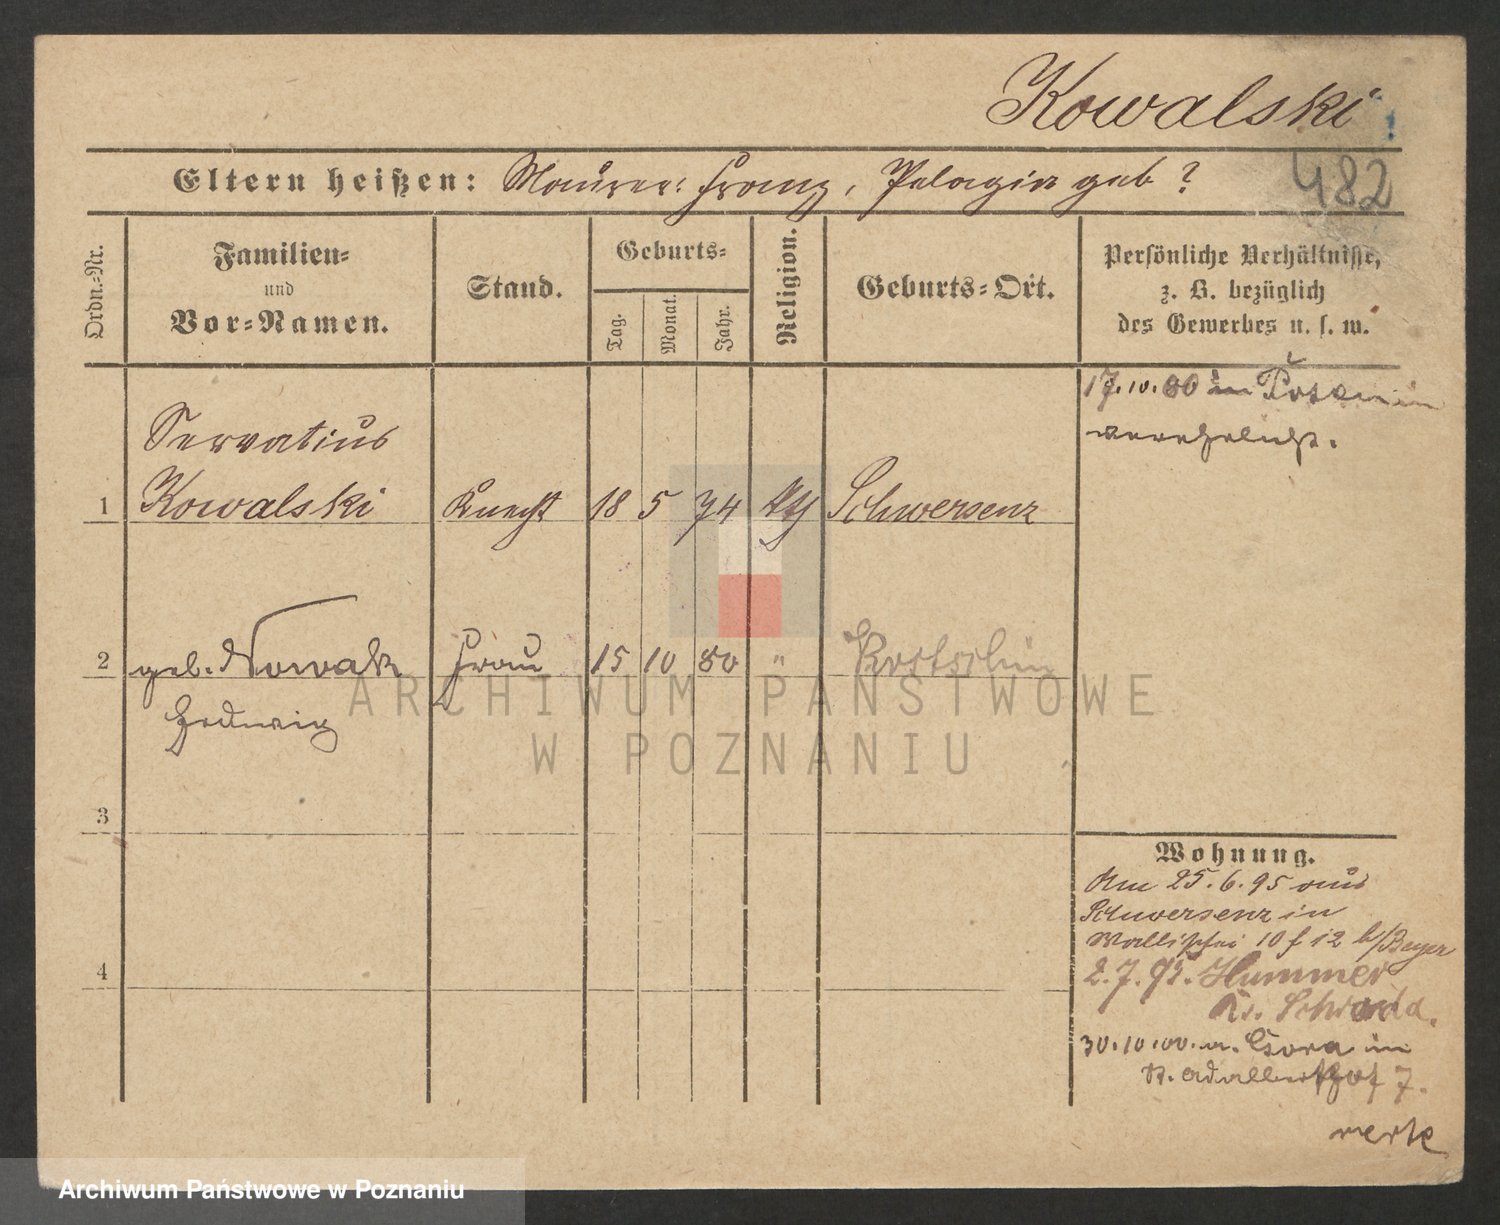 Kowalski
482
Eltern heißen: Maurer Franz, Pelagia geb ?
Ordn.-Nr.
Familien-
und
Vor-Namen.
Stand.
Geburts-
Tag.
Monat.
Jahr.
Religion.
Geburts-Ort.
Persönliche Verhältnisse,
z. B. bezüglich
des Gewerbes u. s. w.
17.10.00 in Posen
verehelicht.
Servatius
1 Kowalski Knecht 18 5 74 Schwersenz
2 geb. Nowak Frau 15 10 80 " Kostschin
Hedwig
3
4
Wohnung.
Am 25.6.95 aus
Schwersenz in
Wallischei 10 f 12 b/Beyer
2.7.95. Hummer
Kr. Schroda.
30.10.00. a. Gora in
St. Adalberthof 7.
ARCHIWUM PAŃSTWOWE
W POZNANIU
Archiwum Państwowe w Poznaniu